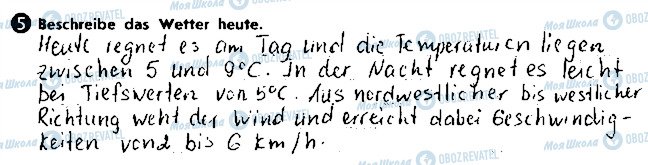 5 Beschreibe das Wetter heute.
Heute regnet es am Tag und die Temperaturen liegen
zwischen 5 und 9°C. In der Nacht regnet es leicht
bei Tiefswerten von 5°C. Aus nordwestlicher bis westlicher
Richtung weht der Wind und erreicht dabei Geschwindig-
keiten von 2 bis 6 km/h.